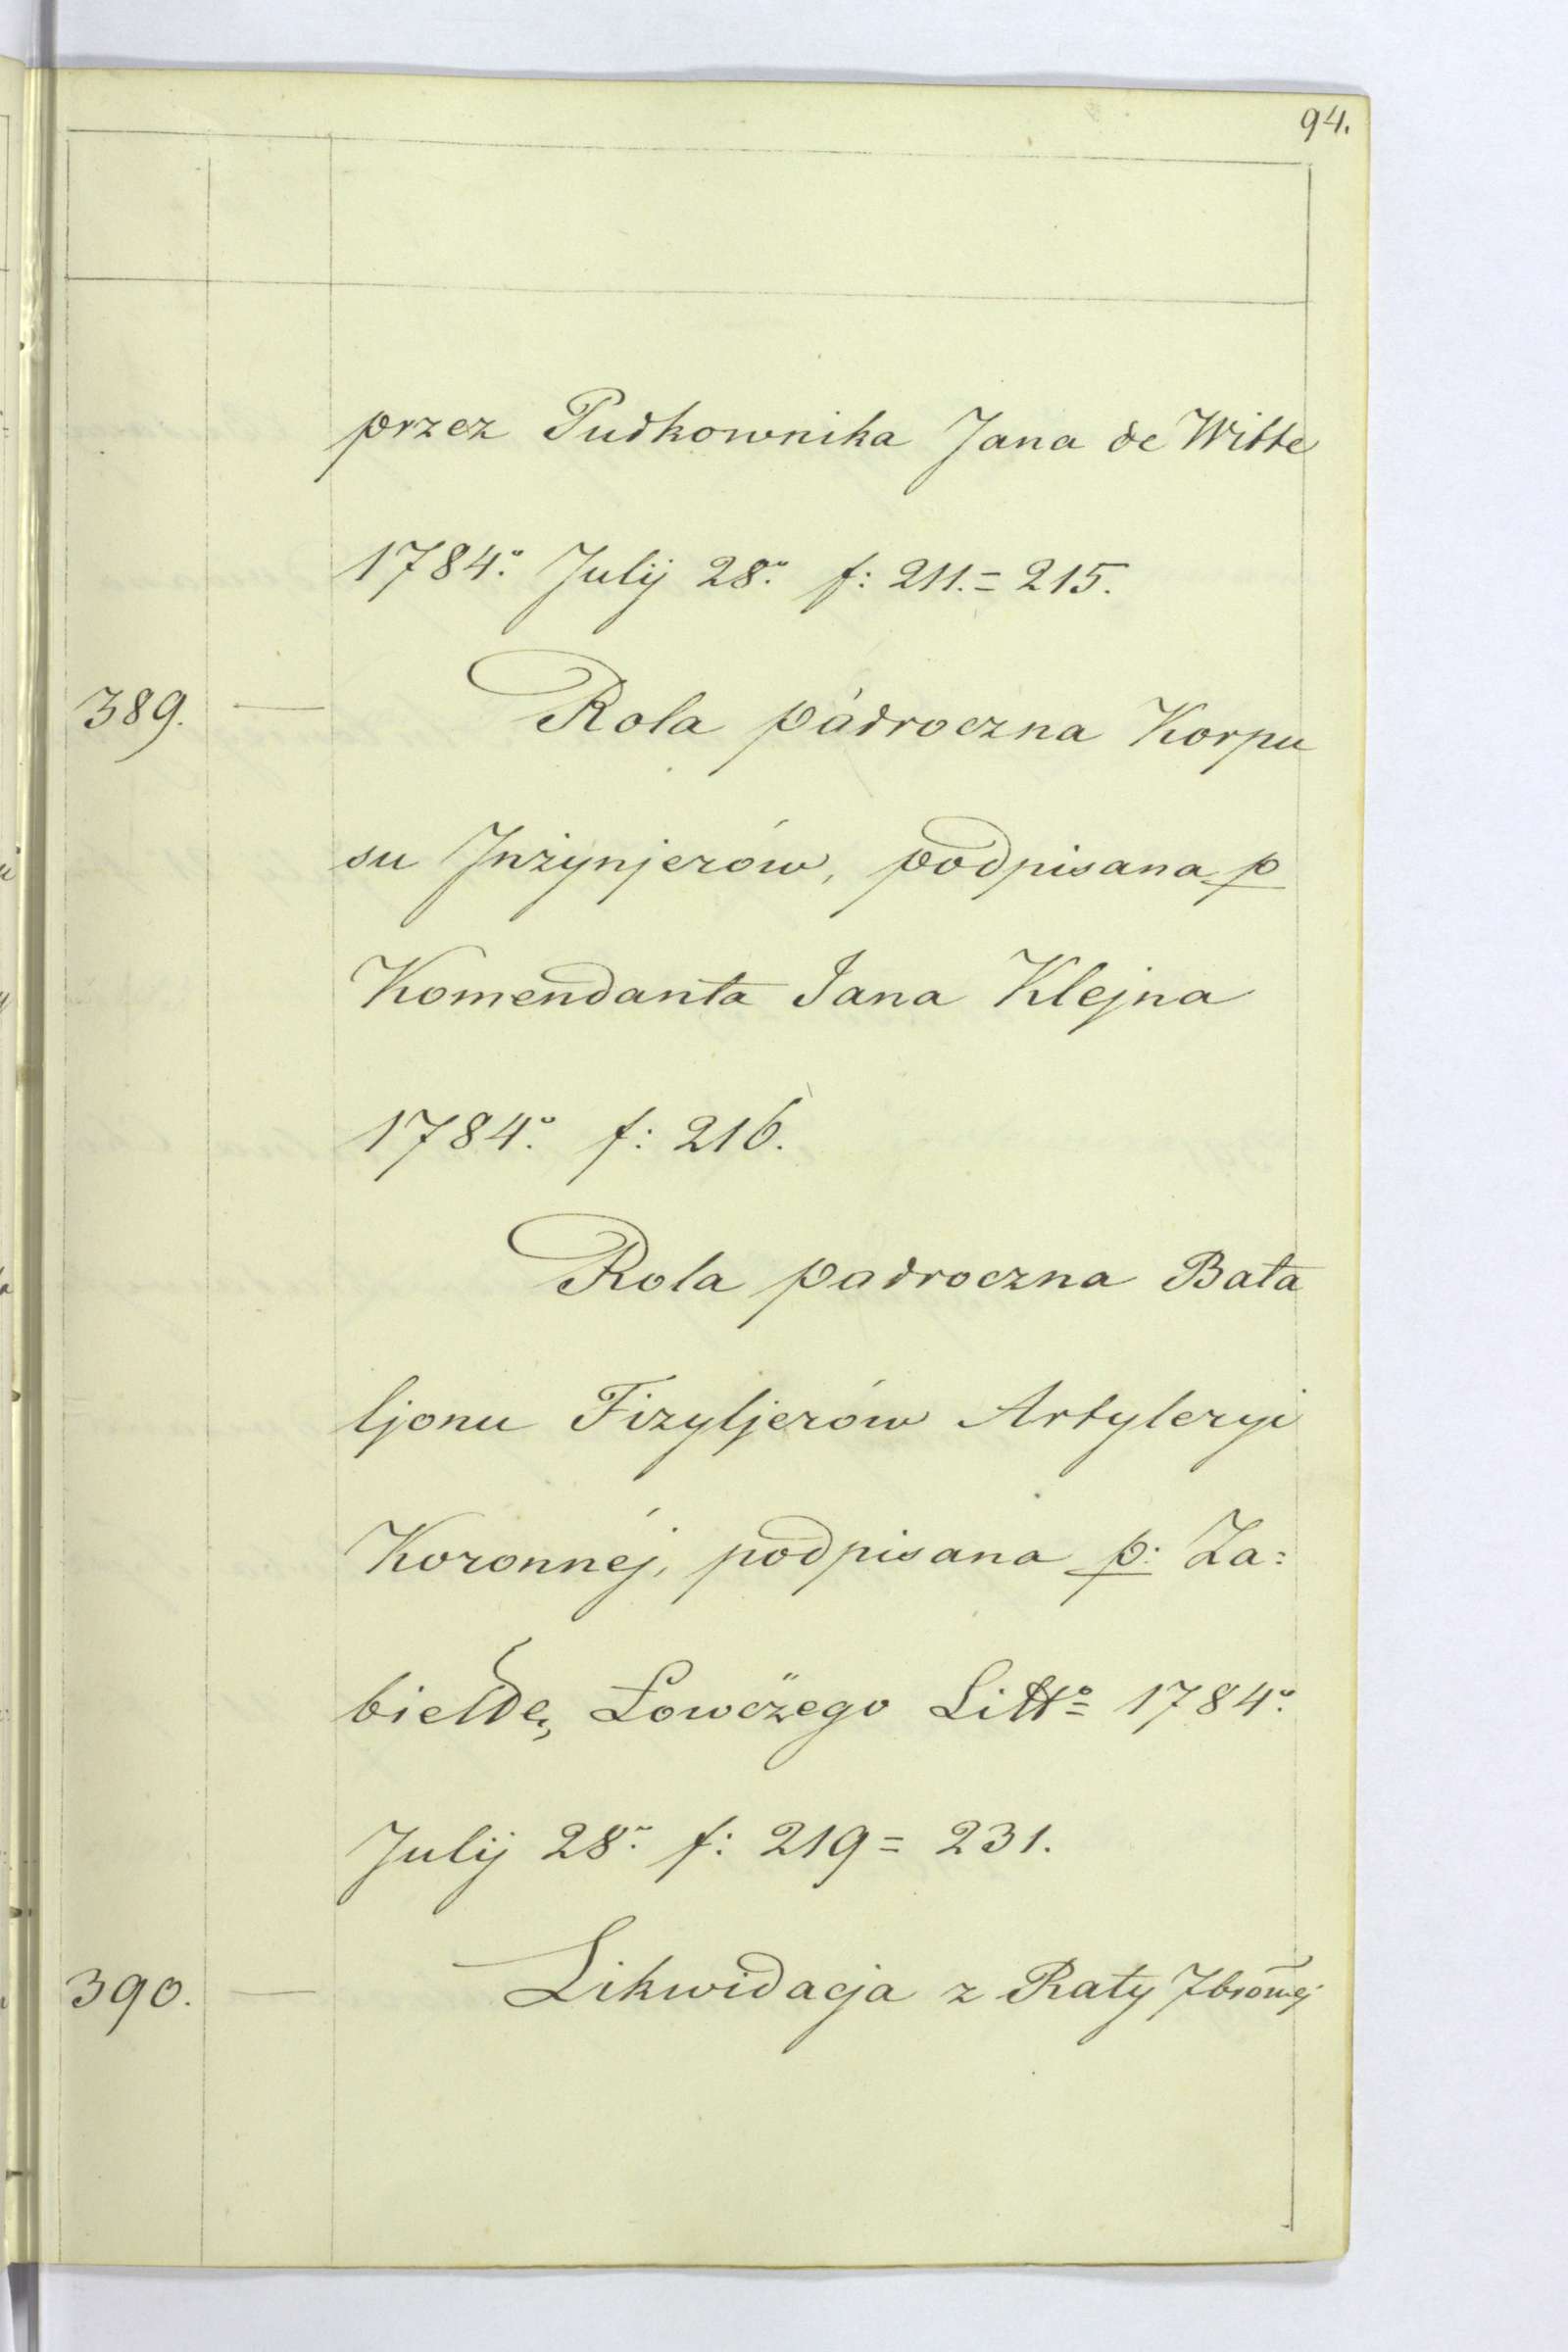 94.
przez Pułkownika Jana de Witte
1784.o Julij 28.a f: 211.=215.
389. — Rola półroczna Korpu
su Inżynjerów, podpisana p
Komendanta Jana Klejna
1784.o f: 216.
Rola połroczna Bata
ljonu Fizyljerów Artyleryi
Koronnéj, podpisana p: Za=
biełłę, Łowczego Litto 1784.o
Julij 28.a f: 219=231.
390. — Likwidacja z Raty 7browej